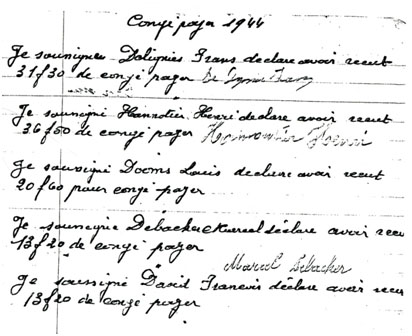 Congé payer 1944
Je sousignes Delignies Frans declare avoir recut
31f30 de congé payer De Lignies Frans
Je sousigné Hannotier Henri declare avoir recut
36f60 de congé payer Hannotier Henri
Je sousigné Dooms Louis declare avoir recut
20f60 pour congé payer
Je sousigné Debacker Marcel déclare avoir recu
13f20 de congé payer
Marcel Debacker
Je soussigné David Francois déclare avoir recu
13f20 de congé payer